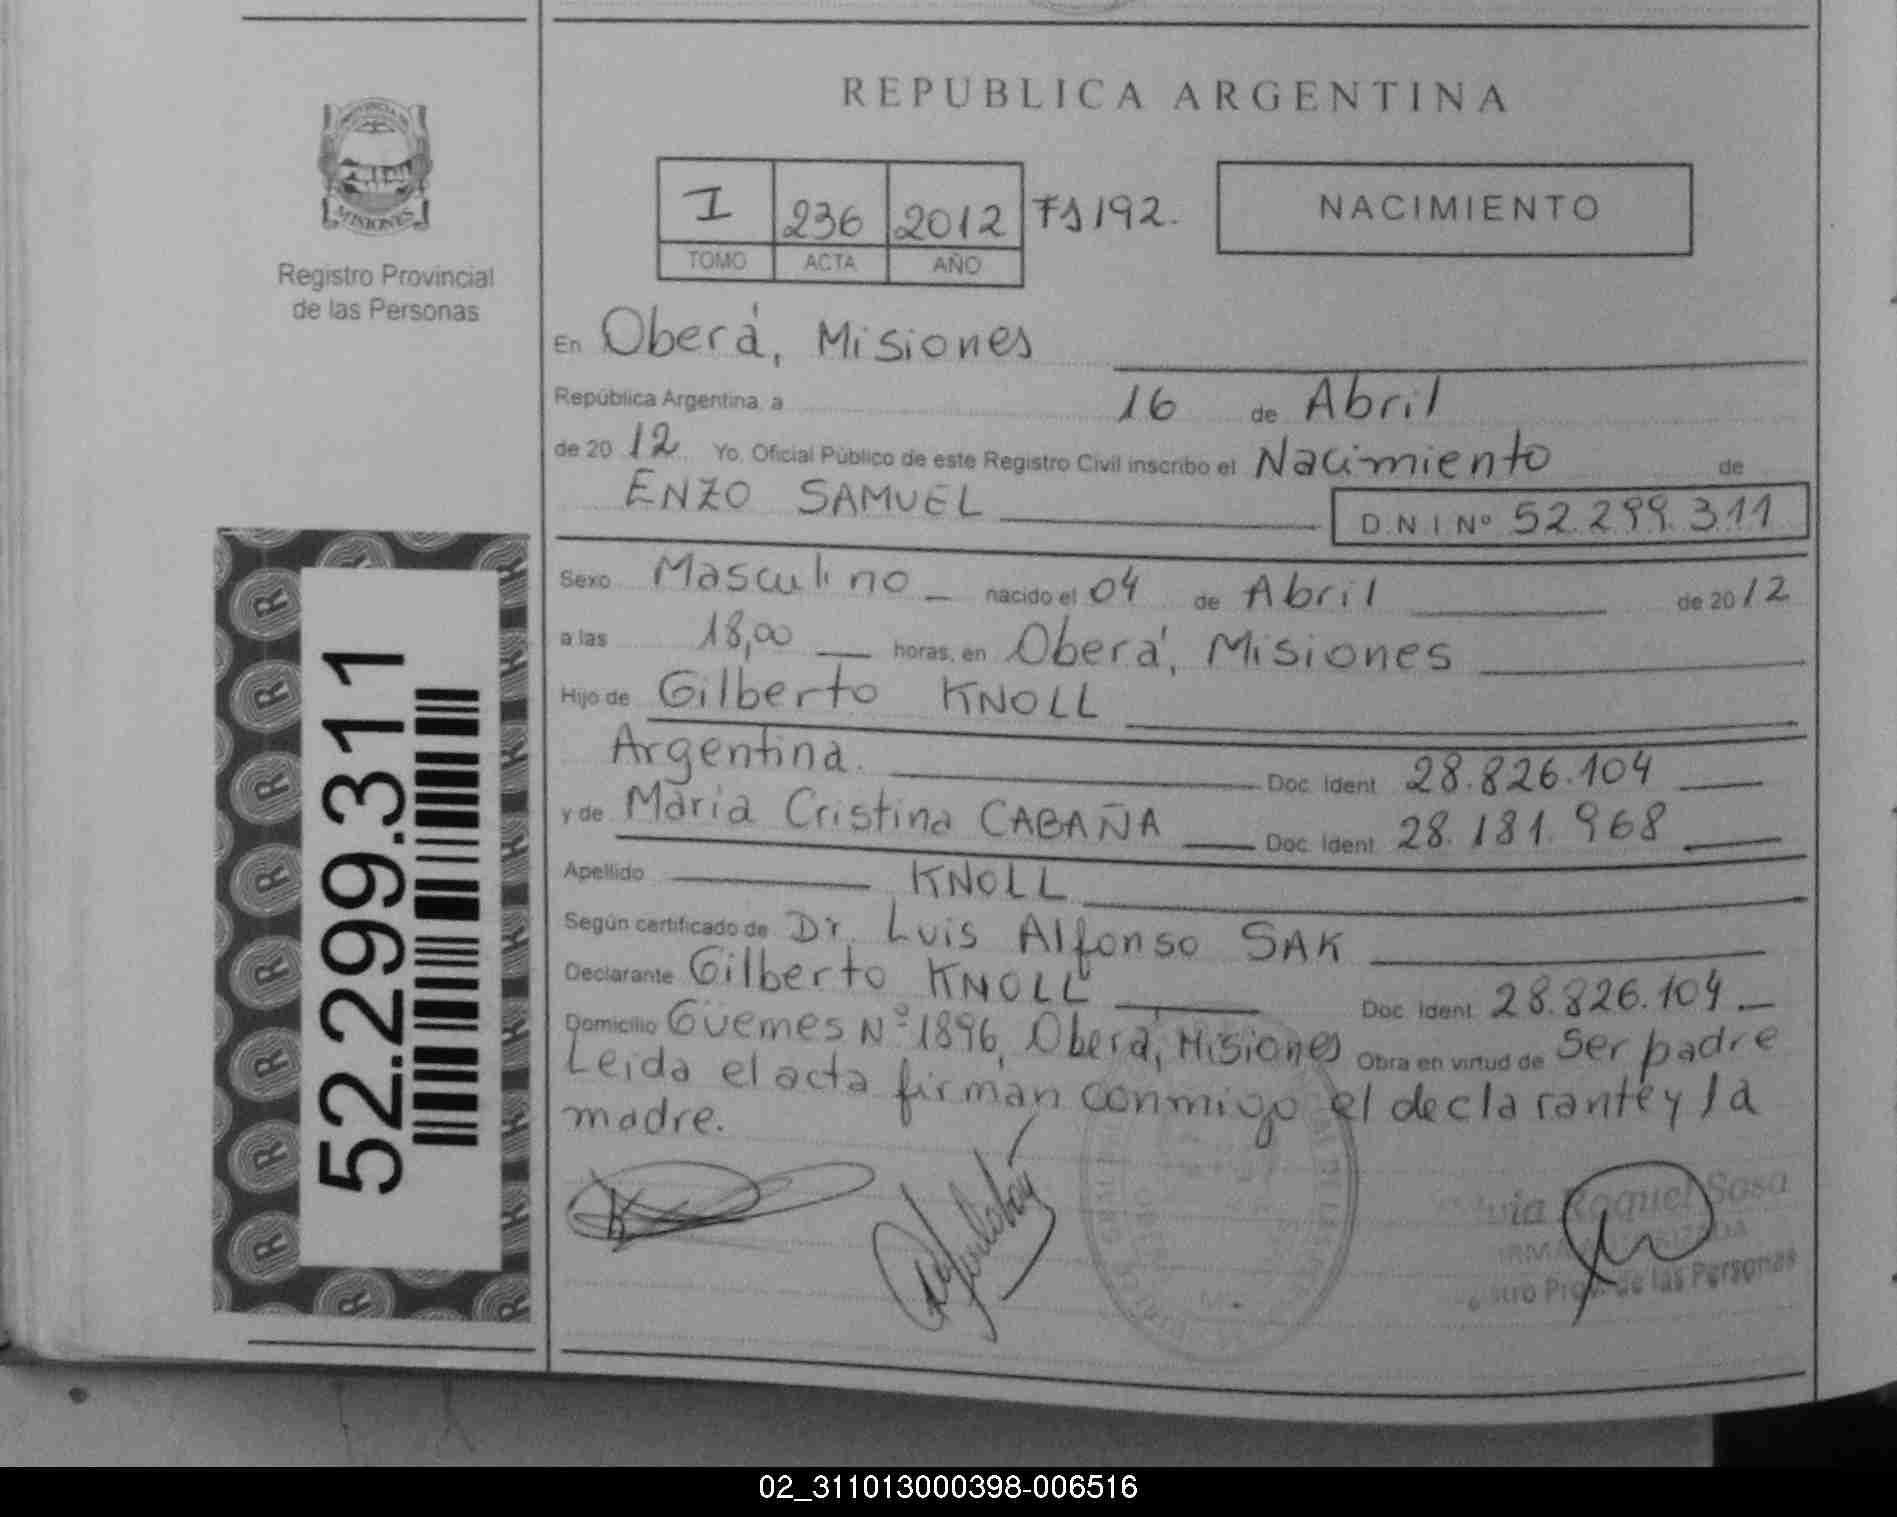 PROVINCIA DE
MISIONES
Registro Provincial
de las Personas
52.299.311
REPUBLICA ARGENTINA
I 236 2012 FS 192.
TOMO ACTA AÑO
NACIMIENTO
En Oberá, Misiones
República Argentina, a 16 de Abril
de 20 12 Yo, Oficial Público de este Registro Civil inscribo el Nacimiento de
ENZO SAMUEL D.N.I Nº 52.299.311
Sexo Masculino nacido el 04 de Abril de 20 12
a las 18,00 horas, en Oberá, Misiones
Hijo de Gilberto KNOLL
Argentina. Doc. Ident. 28.826.104
y de Maria Cristina CABAÑA Doc. Ident. 28.181.968
Apellido KNOLL
Según certificado de Dr. Luis Alfonso SAK
Declarante Gilberto KNOLL Doc. Ident. 28.826.104
Domicilio Güemes Nº 1896, Oberá, Misiones Obra en virtud de Ser padre
Leida el acta firman conmigo el declarante y la
madre.
Raquel Sosa
de las Personas
02_311013000398-006516